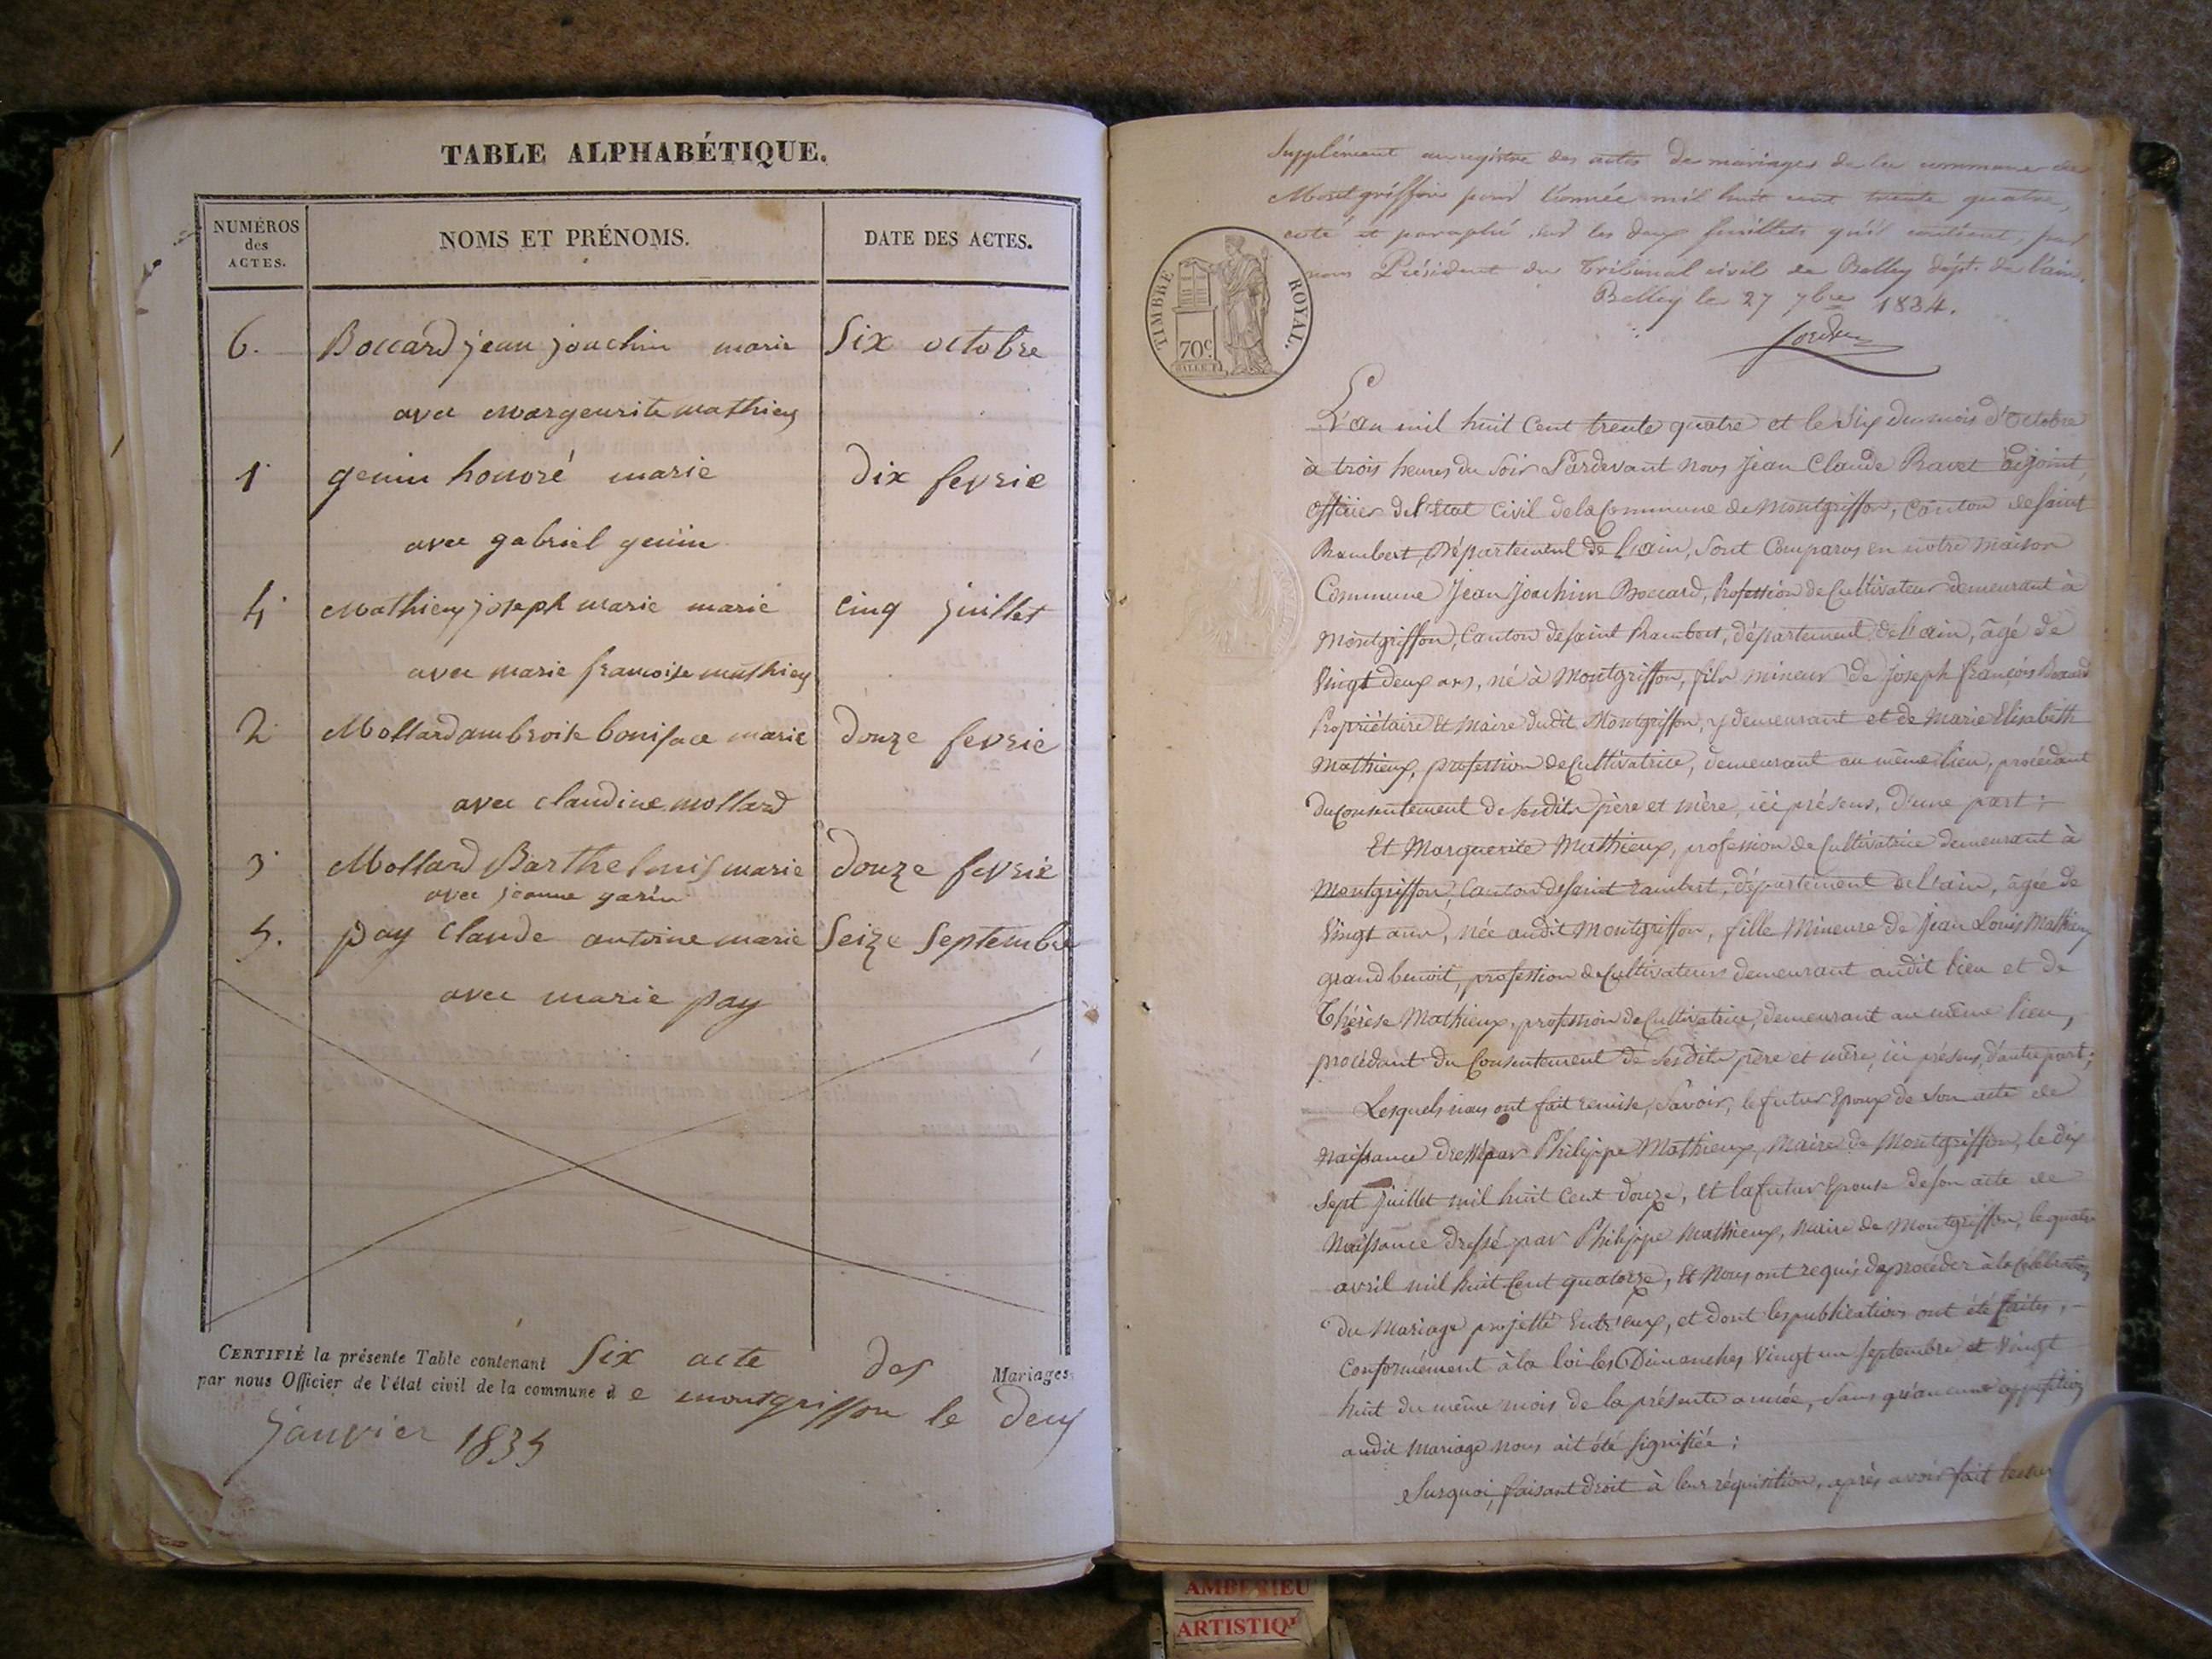 TABLE ALPHABÉTIQUE.
NUMÉROS
des
ACTES.
NOMS ET PRÉNOMS.
DATE DES ACTES.
6. Boccard jean joachim marie Six octobre
avec margeurite mathieu
1 genin honoré marie dix fevrie
avec gabriel genin
4 Mathieu joseph marie marié Cinq juillet
avec marie francoise mathieu
2 Mollard ambroise boniface marie douze fevrie
avec claudine mollard
3 Mollard Barthelmis marie douze fevrie
avec jeanne garin
5. pay Claude antoine marie Seize Septembre
avec marie pay
CERTIFIÉ la présente Table contenant Six acte des Mariages
par nous Officier de l'état civil de la commune d e montgriffon le deux
janvier 1835
Supplément au registre des actes de mariages de la commune de
Montgriffon pour l'année mil huit cent trente quatre,
coté et paraphé sur les deux feuillets qu'il contient, par
nous Président du Tribunal civil de Belley dépt. de l'ain.
Belley le 27 7bre 1834.
TIMBRE ROYAL.
70c
L'an mil huit Cent trente quatre et le Six du mois d'Octobre
à trois heures du Soir Pardevant Nous Jean Claude Ravet adjoint,
Officier de l'Etat Civil de la Commune de Montgriffon, Canton de Saint
Rambert, Département de l'ain, Sont Comparus en notre Maison
Commune Jean Joachim Boccard, Profession de Cultivateur demeurant à
Montgriffon, Canton de Saint Rambert, département de l'ain, âgé de
Vingt deux ans, né à Montgriffon, fils mineur de Joseph françois Boccard
Propriétaire Et Maire dudit Montgriffon, y demeurant et de Marie Elisabeth
Mathieux, profession de Cultivatrice, demeurant au même lieu, procédant
du Consentement de Sesdits père et mère, ici présens, d'une part;
Et Marguerite Mathieux, profession de Cultivatrice demeurant à
Montgriffon, Canton de Saint Rambert, département de l'ain, âgée de
Vingt ans, née audit Montgriffon, fille Mineure de Jean Louis Mathieux
grand benoit, profession de Cultivateurs demeurant audit lieu et de
Thérèse Mathieux, profession de Cultivatrice, demeurant au même lieu,
procédant du Consentement de Sesdits père et mère, ici présens, d'autre part;
Lesquels nous ont fait remise, Savoir, le futur Epoux de Son acte de
Naissance dressé par Philippe Mathieux, Maire de Montgriffon, le dix
Sept Juillet mil huit Cent douze, Et la futur Epouse de Son acte de
Naissance dressé par Philippe Mathieux, Maire de Montgriffon, le quatre
avril mil huit Cent quatorze, Et Nous ont requis de procéder à la Célébration
du Mariage projetté Entr'eux, et dont les publications ont été faites,
Conformément à la loi les Dimanches Vingt un Septembre et Vingt
huit du même mois de la présente année, Sans qu'aucune opposition
audit Mariage nous ait été Signifiée;
Surquoi, faisant droit à leur réquisition, après avoir fait lecture
AMBERIEU
ARTISTIQ